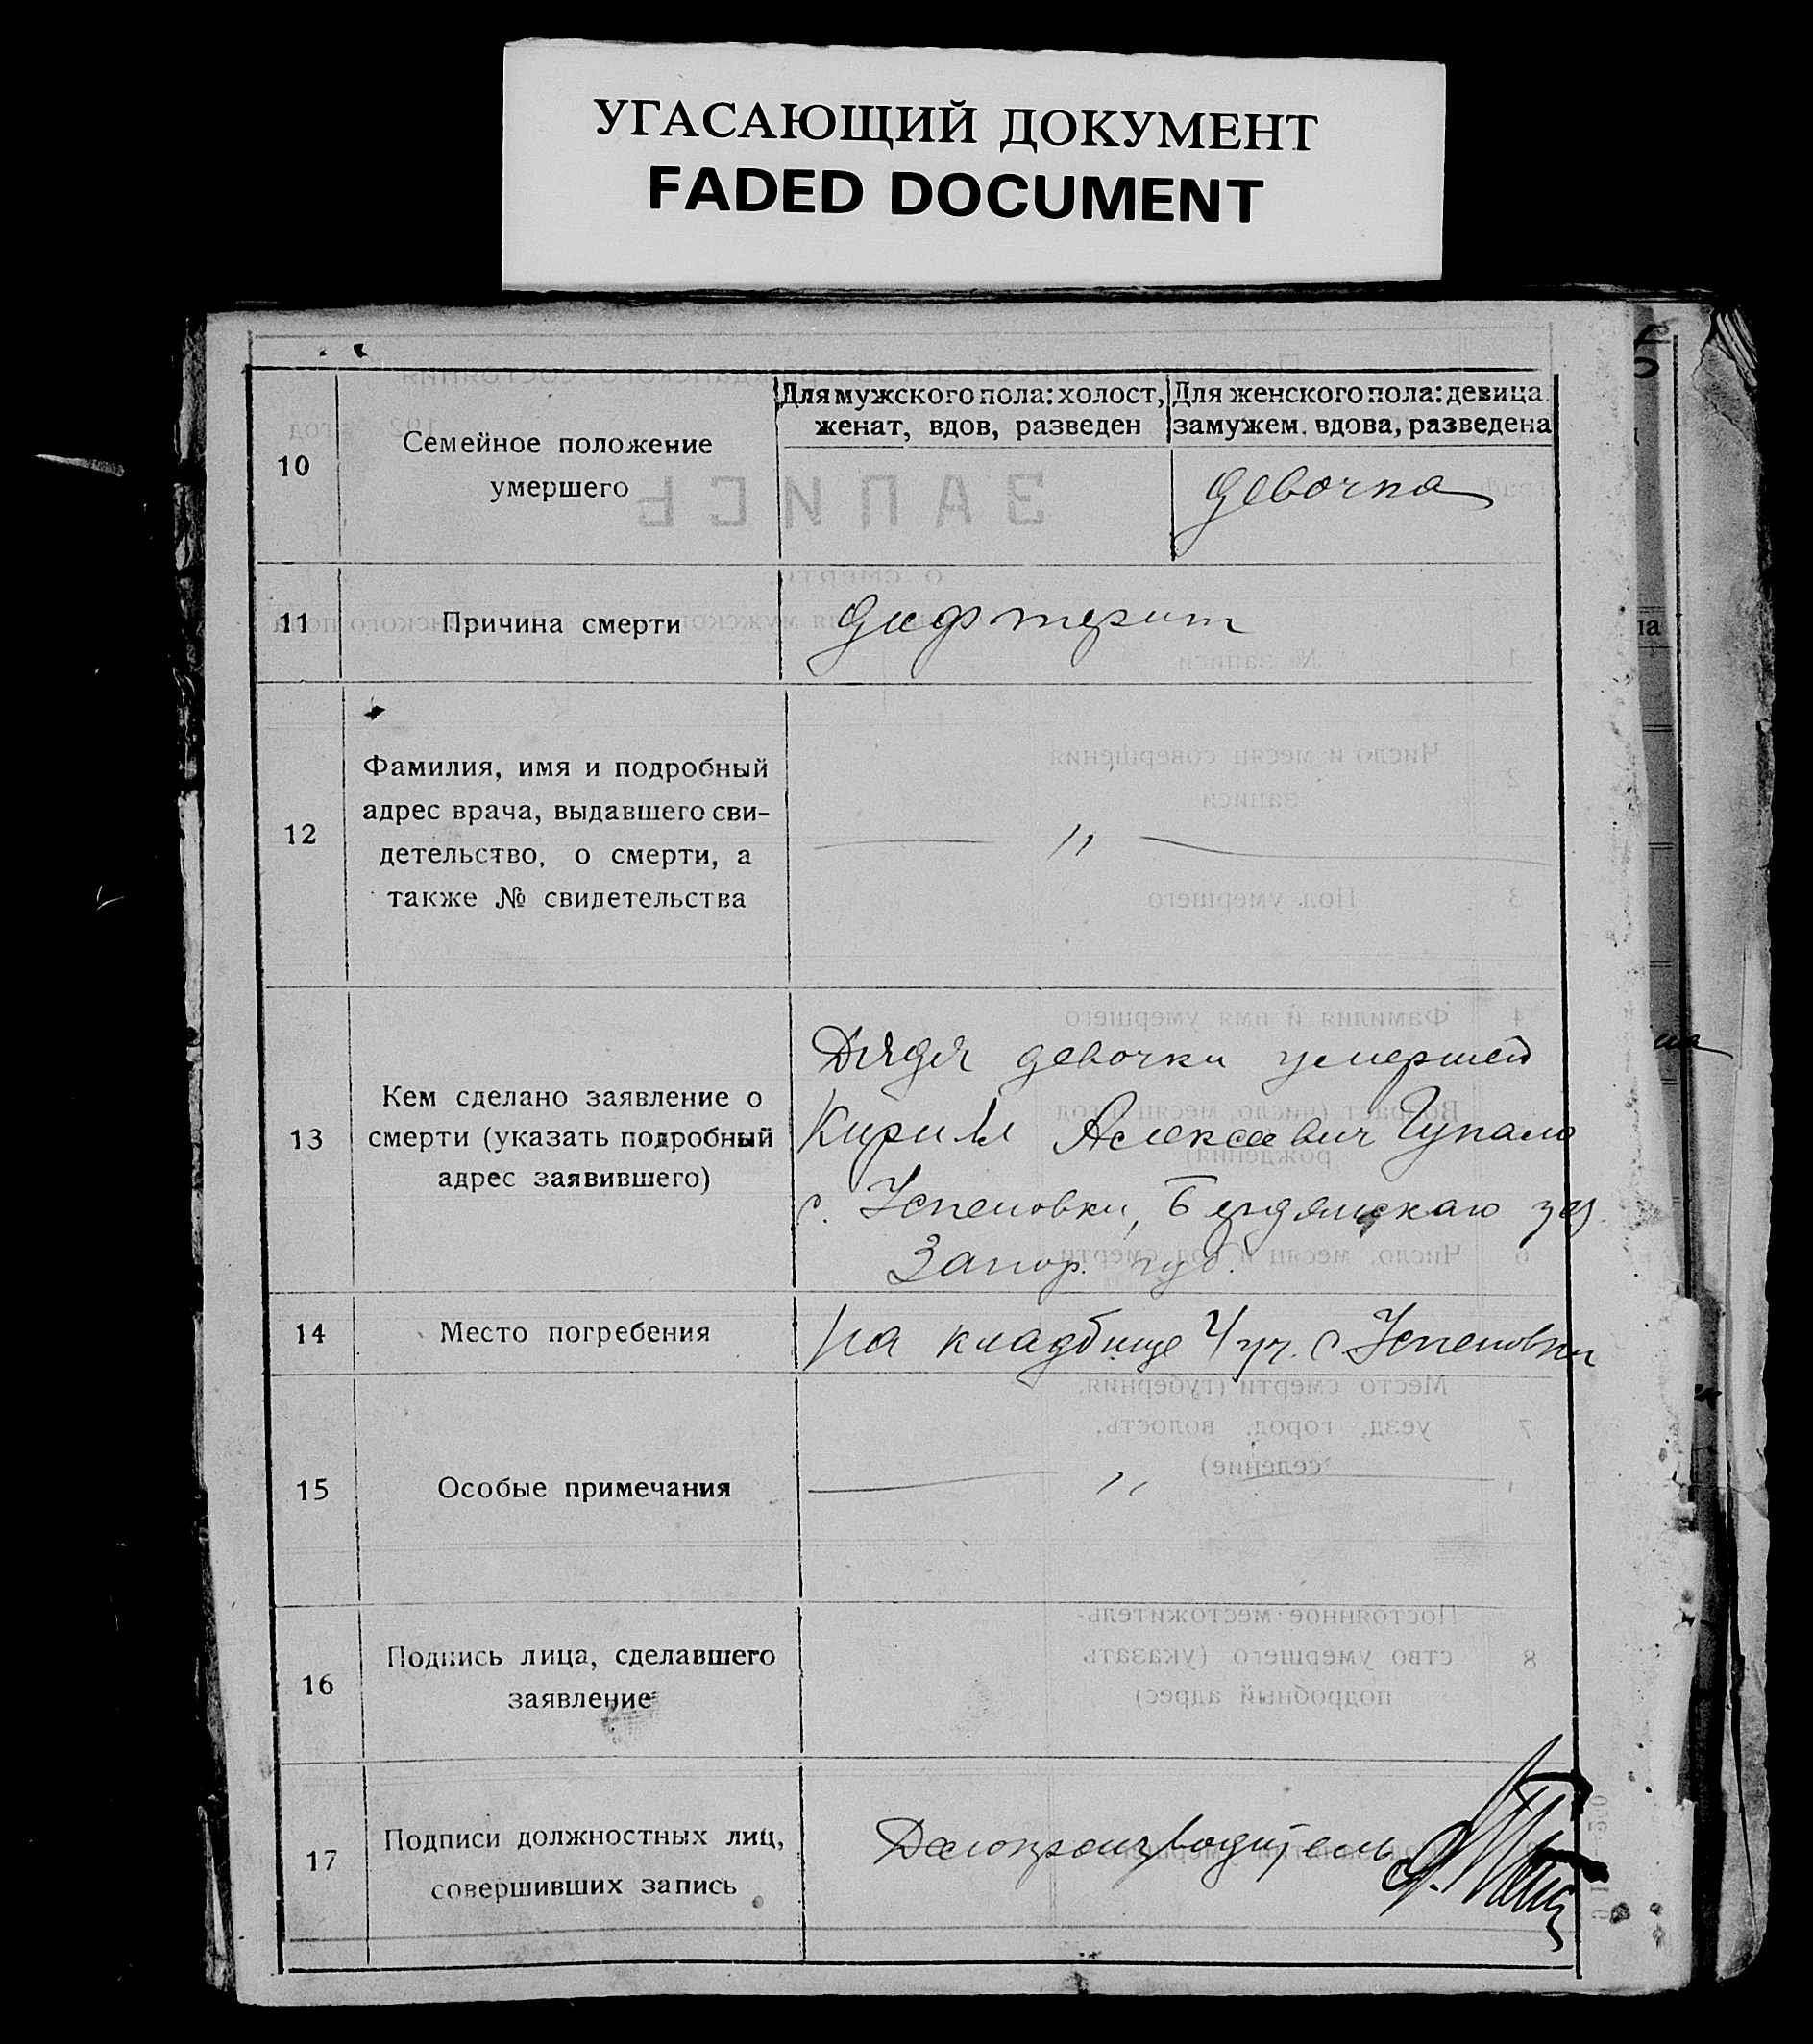 УГАСАЮЩИЙ ДОКУМЕНТ
FADED DOCUMENT
10
Семейное положение
умершего
Для мужского пола: холост,
женат, вдов, разведен
Для женского пола: девица
замужем. вдова, разведена
девочка
11
Причина смерти
дифтерит
12
Фамилия, имя и подробный
адрес врача, выдавшего сви-
детельство, о смерти, а
также № свидетельства
〃
13
Кем сделано заявление о
смерти (указать подробный
адрес заявившего)
Дядя девочки умершей
Кирилл Алексеевич Гупало
с. Успеновки, Бердянскаго уез.
Запор. губ.
14
Место погребения
На кладбище 4 уч. с Успеновки
15
Особые примечания
〃
16
Подпись лица, сделавшего
заявление
17
Подписи должностных лиц,
совершивших запись
Делопроизводитель